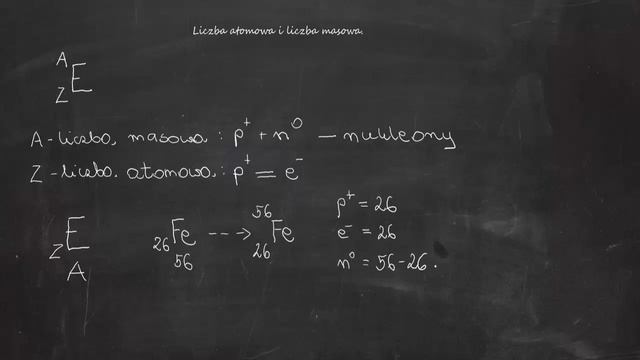 Liczba atomowa i liczba masowa.
A
E
Z
A - liczba masowa : p⁺ + n⁰ — nukleony
Z - liczba atomowa : p⁺ = e⁻
E
Z
A
₂₆Fe ---> ⁵⁶Fe
56 26
p⁺ = 26
e⁻ = 26
n⁰ = 56 - 26.